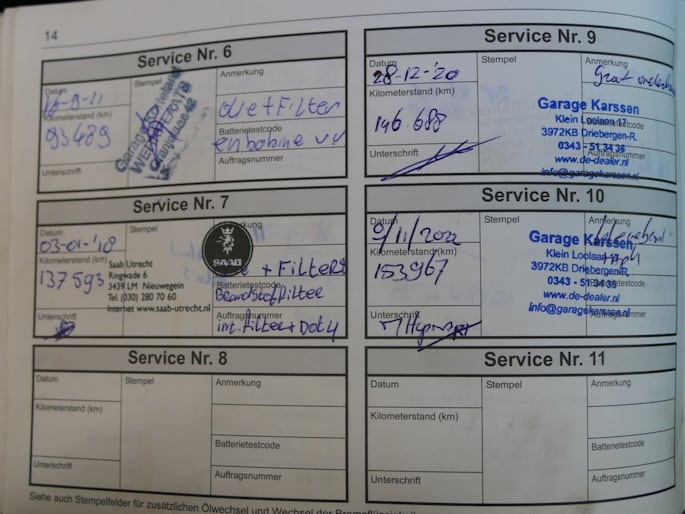 14
Service Nr. 6
Datum
Stempel
Anmerkung
-9-11
olie + Filter
Kilometerstand (km)
93489
Batterietestcode
en bobine vv
Auftragsnummer
Unterschrift
Service Nr. 7
Datum
Stempel
03-01-'18
SAAB
+ Filters
Kilometerstand (km)
137593
Saab Utrecht
Ringwade 6
3439 LM Nieuwegein
Tel. (030) 280 70 60
Internet www.saab-utrecht.nl
Batterietestcode
Brandstoffilter
Auftragsnummer
int. filter + Dot 4
Unterschrift
Service Nr. 8
Datum
Stempel
Anmerkung
Kilometerstand (km)
Batterietestcode
Unterschrift
Auftragsnummer
Service Nr. 9
Datum
Stempel
Anmerkung
28-12-'20
Kilometerstand (km)
146.688
Garage Karssen
Klein Loolaan 17
3972KB Driebergen-R.
0343 - 51 34 36
www.de-dealer.nl
info@garagekarssen.nl
Unterschrift
Service Nr. 10
Datum
Stempel
Anmerkung
/11/2022
Kilometerstand (km)
153967
Garage Karssen
Klein Loolaan
3972KB Driebergen-R.
0343 - 51 34 36
www.de-dealer.nl
info@garagekarssen.nl
Unterschrift
Service Nr. 11
Datum
Stempel
Anmerkung
Kilometerstand (km)
Batterietestcode
Unterschrift
Auftragsnummer
Siehe auch Stempelfelder für zusätzlichen Ölwechsel und Wechsel der Bremsflüssigkeit